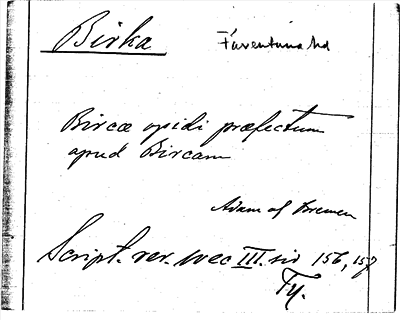 Birka
Bircæ opidi præfectum
apud Bircam
Adam af Bremen
Script. rer. svec III. sid 156, 157
Fy.